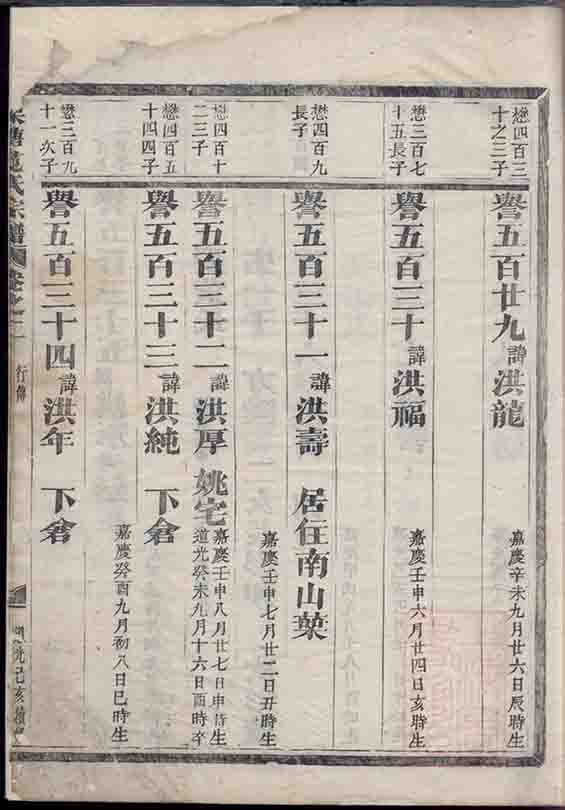 懋四百三
十之三子
譽五百廿九諱洪龍
嘉慶辛未九月廿六日辰時生
懋三百七
十五長子
譽五百三十諱洪福
嘉慶壬申六月廿四日亥時生
懋四百九
長子
譽五百三十一諱洪壽 居住南山葉
嘉慶壬申七月廿二日丑時生
懋四百十
二三子
譽五百三十二諱洪厚 姚宅
嘉慶壬申八月廿七日申時生
道光癸未九月十六日酉時卒
懋四百五
十四四子
譽五百三十三諱洪純 下倉
嘉慶癸酉九月初八日巳時生
懋三百九
十一次子
譽五百三十四諱洪年 下倉
氏宗譜 卷之二 行傳
己亥續